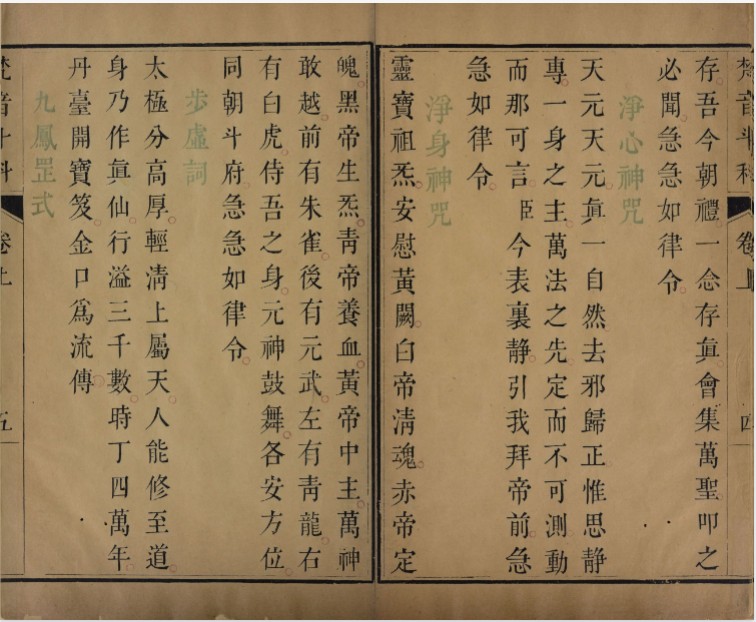 梵音斗科 卷上 四
存吾今朝禮一念存眞會集萬聖叩之
必聞急急如律令
淨心神咒
天元天元眞一自然去邪歸正惟思靜
專一身之主萬法之先定而不可測動
而那可言臣今表裏靜引我拜帝前急
急如律令
淨身神咒
靈寶祖炁安慰黃闕白帝淸魂赤帝定
魄黑帝生炁靑帝養血黃帝中主萬神
敢越前有朱雀後有元武左有靑龍右
有白虎侍吾之身元神鼓舞各安方位
同朝斗府急急如律令
步虛詞
太極分高厚輕淸上屬天人能修至道
身乃作眞仙行溢三千數時丁四萬年
丹臺開寶笈金口爲流傳
九鳳罡式
梵音斗科 卷上 五